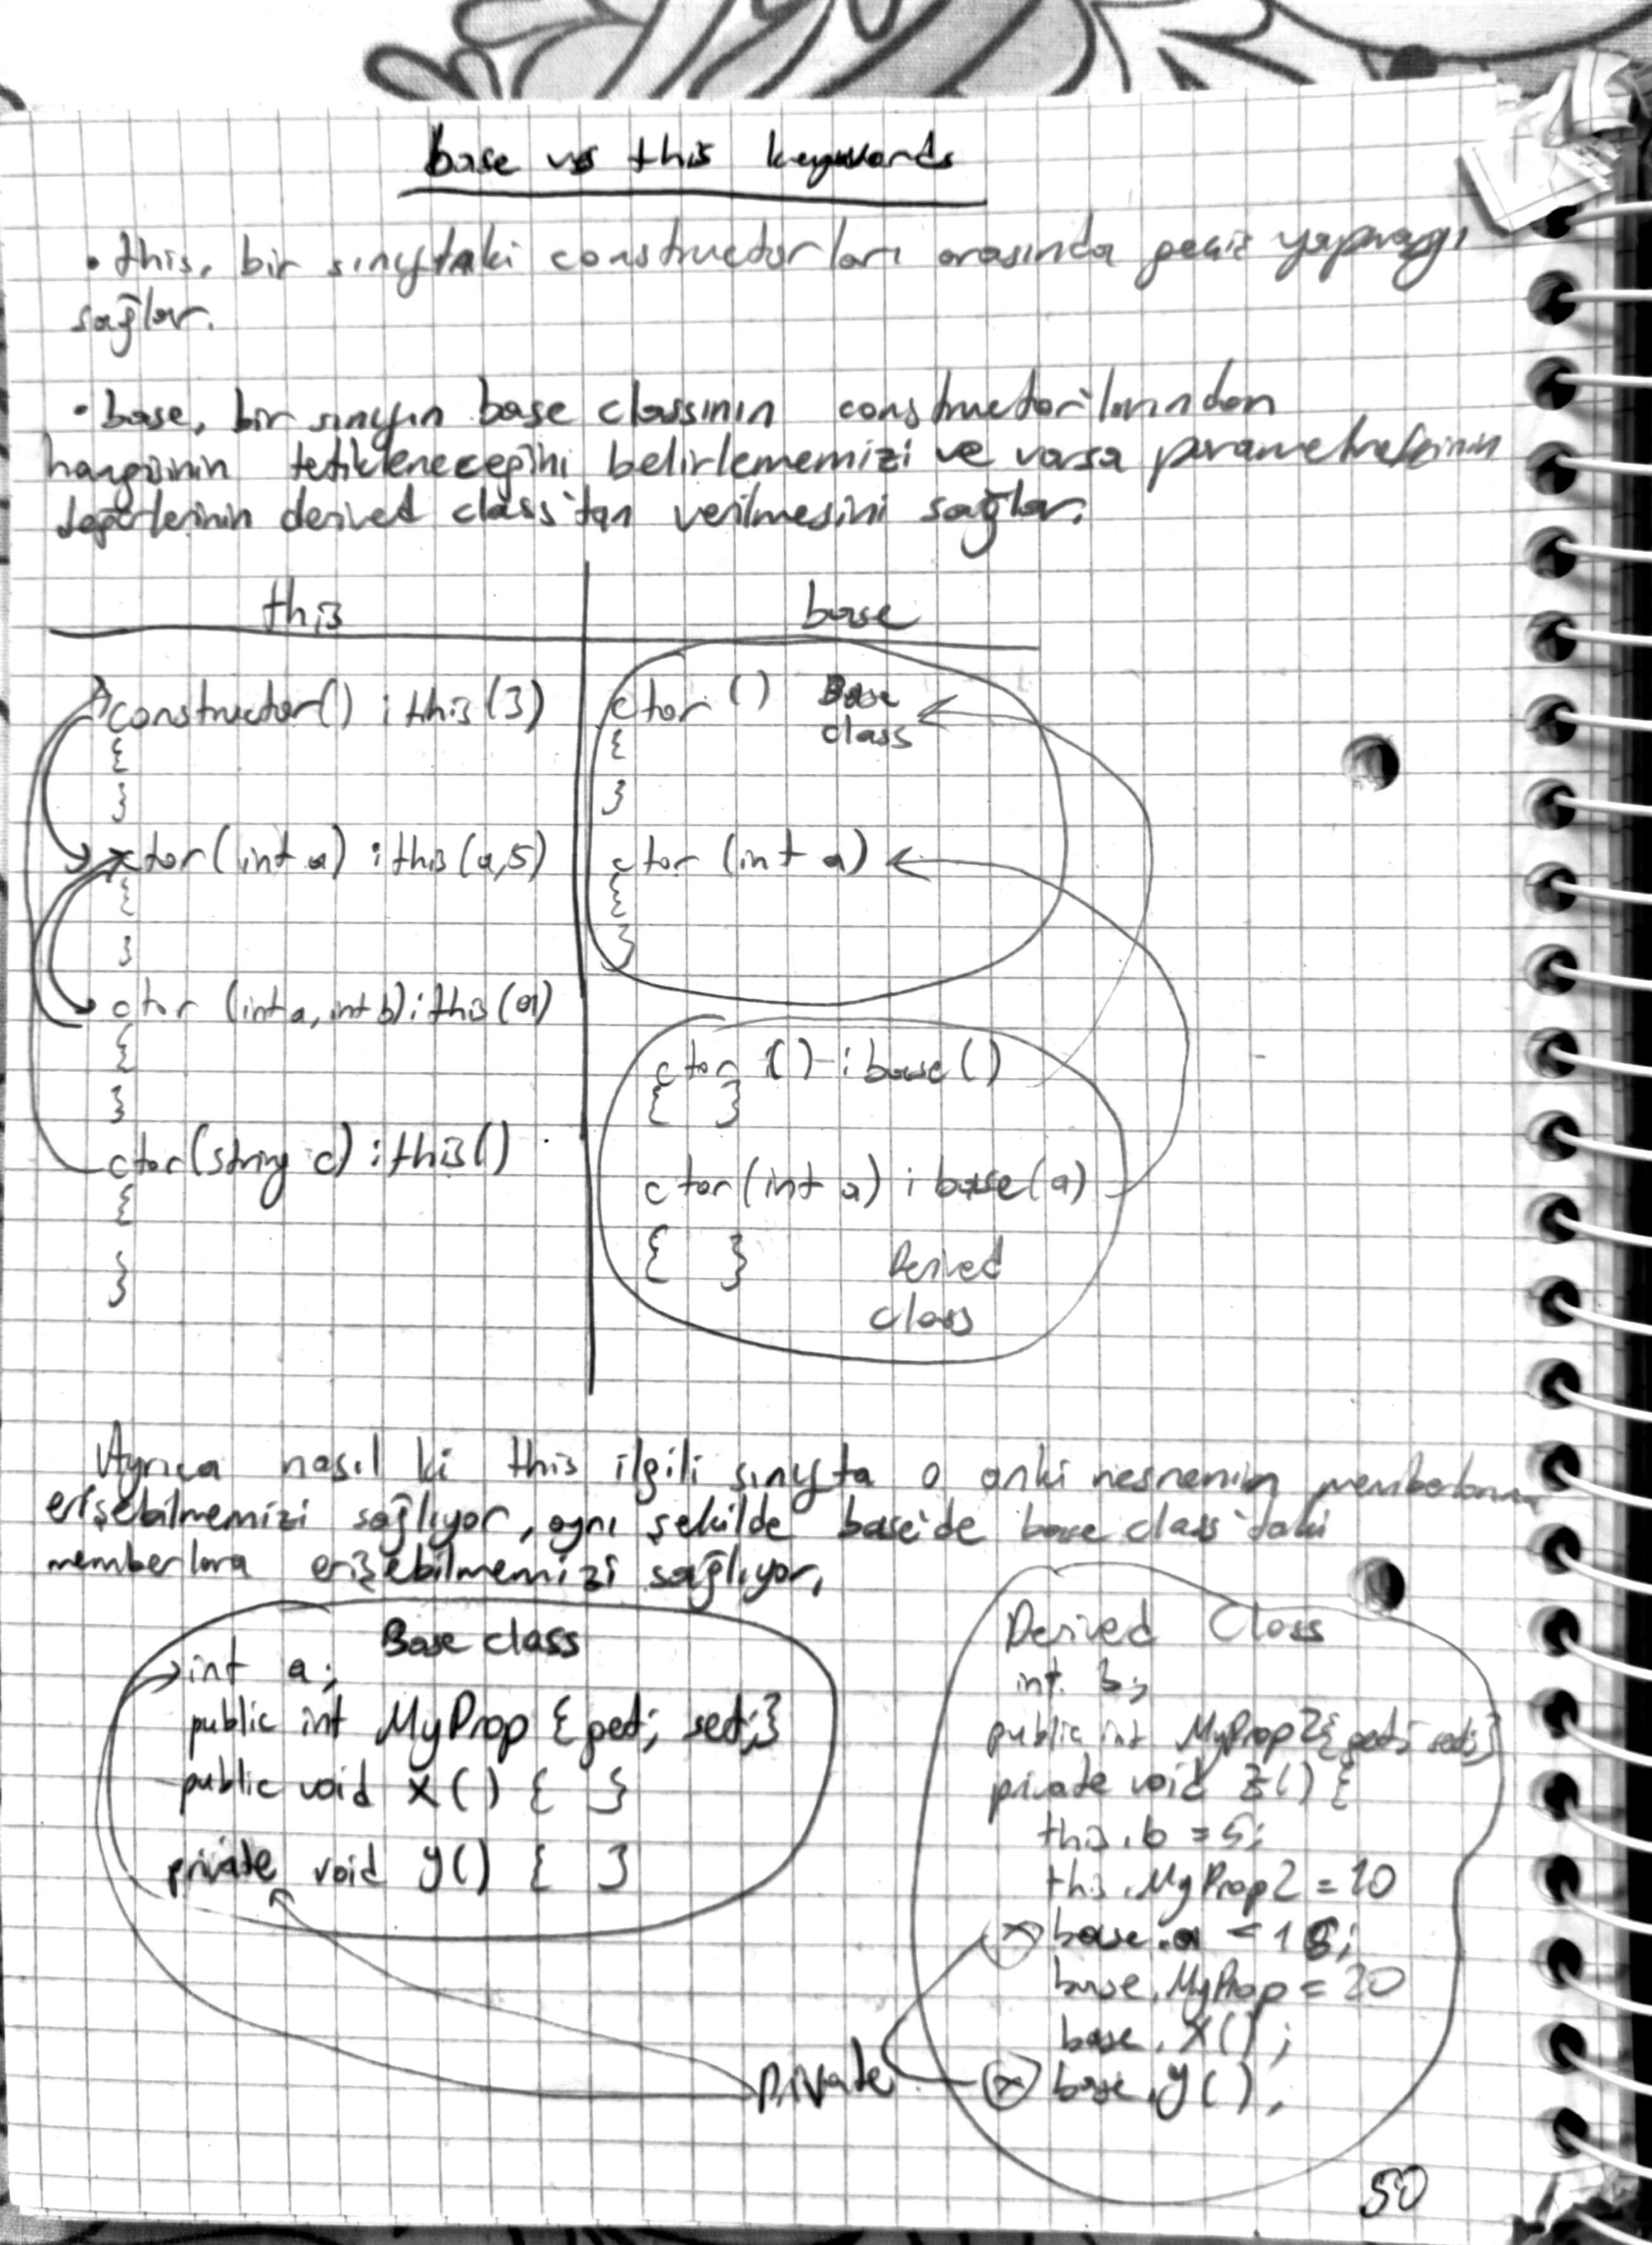 base vs this keywords
• this, bir sınıftaki constructorları arasında geçiş yapmayı
sağlar.
• base, bir sınıfın base classının constructor'larından
hangisinin tetikleneceğini belirlememizi ve varsa parametrelerinin
değerlerinin derived class'tan verilmesini sağlar.
this
base
constructor() : this(3)
{
}
ctor(int a) : this(a,5)
{
}
ctor (int a, int b) : this(a)
{
}
ctor(string c) : this()
{
}
ctor () Base
class
{
}
ctor (int a)
{
}
ctor () : base()
{ }
ctor(int a) : base(a)
{ }
Derived
class
Ayrıca nasıl ki this ilgili sınıfta o anki nesnenin memberlarına
erişebilmemizi sağlıyor, aynı şekilde base'de base class'taki
memberlara erişebilmemizi sağlıyor.
Base class
int a;
public int MyProp {get; set;}
public void X() { }
private void Y() { }
Derived Class
int b;
public int MyProp2{get; set;}
private void Z() {
this.b = 5;
this.MyProp2 = 10
x base.a = 15;
base.MyProp = 20
base.X();
x base.Y();
private
50